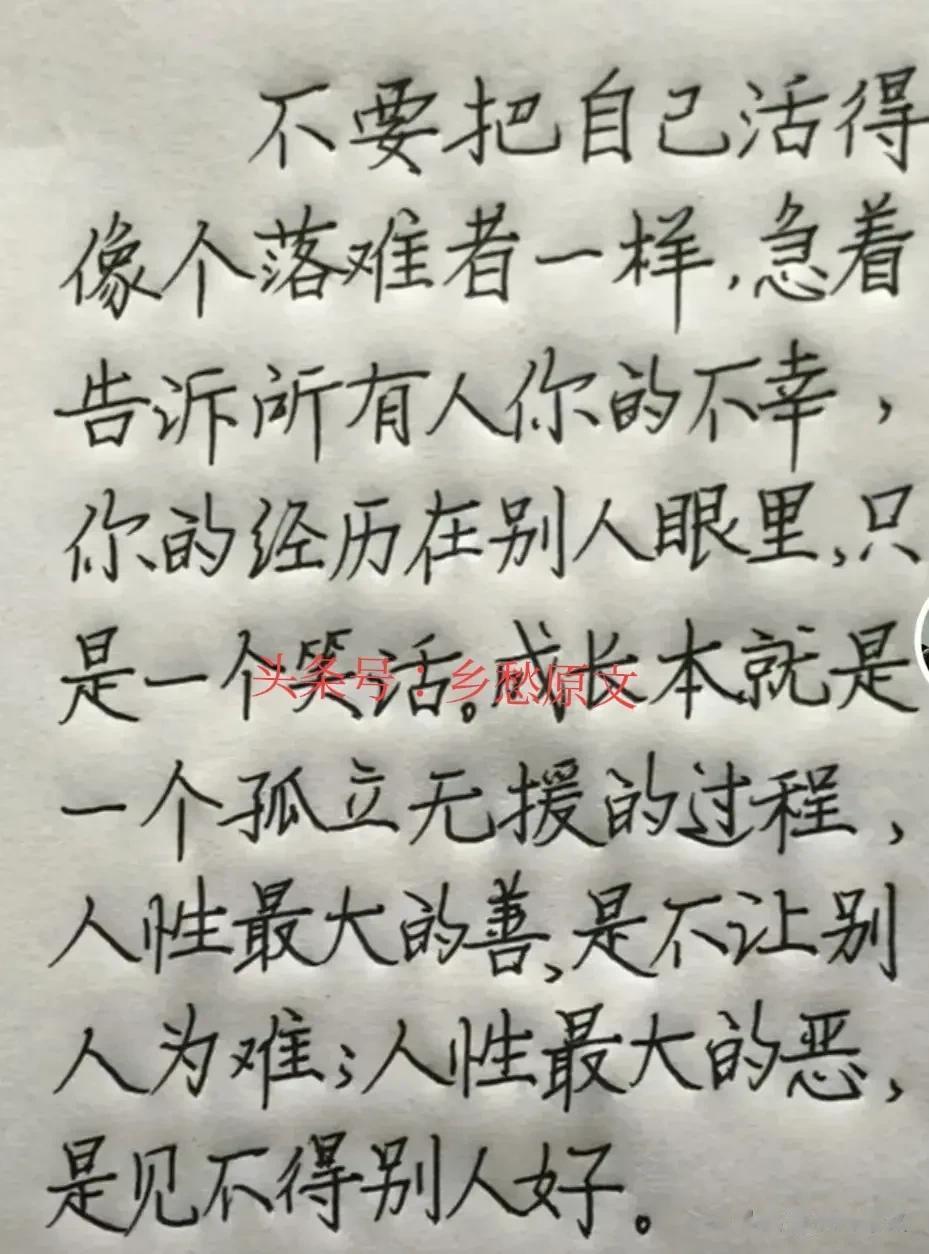 不要把自己活得
像个落难者一样,急着
告诉所有人你的不幸,
你的经历在别人眼里,只
是一个笑话。成长本就是
头条号:乡愁原文
一个孤立无援的过程,
人性最大的善,是不让别
人为难;人性最大的恶,
是见不得别人好。